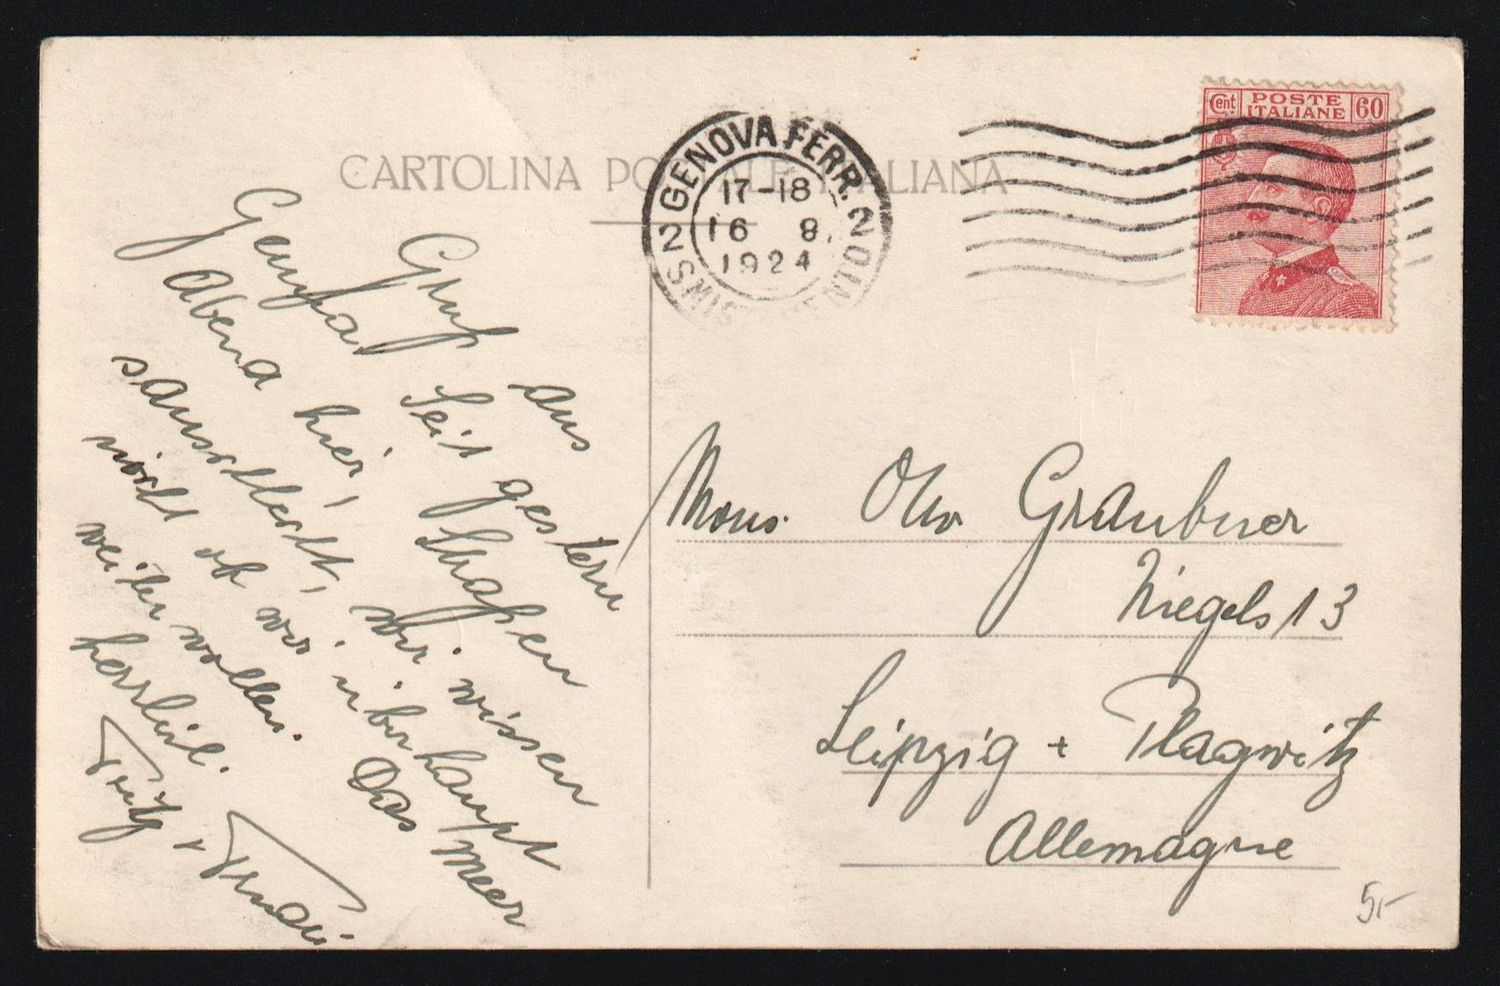 CARTOLINA POSTALE ITALIANA
GENOVA FERR. 2
17-18
16 8.
1924
2 SMIS ENTO
Cent POSTE ITALIANE 60
Gruß aus
Genua. Seit gestern
Abend hier,
wir wissen
nicht ob wir überhaupt
weiter wollen. Das Meer
herrlich.
Fritz +
Mons. Graubner
13
Leipzig + Plagwitz
Allemagne
5,-